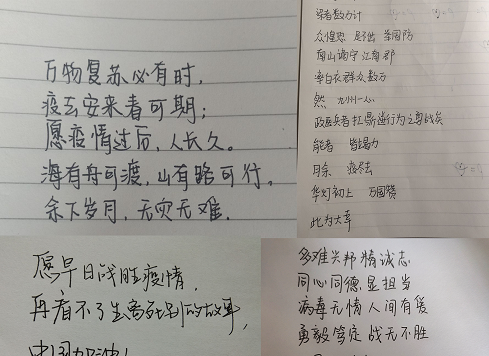 万物复苏必有时，
疫去安来春可期；
愿疫情过后，人长久。
海有舟可渡，山有路可行。
余下岁月，无灾无难．
染者数万计
众惶恐
南山谒宁江南郡
率白衣群众数万
然 九州一心
能者 皆竭力
月余 疫尽去
华灯初上 万国赞
此为大幸
愿早日战胜疫情，
再看不了生离死别的故事，
中国加油！
多难兴邦 精诚志
同心同德 显担当
病毒无情 人间有爱
勇毅笃定 战无不胜